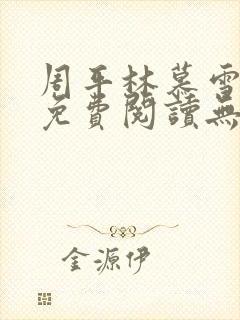 周平林慕雪
免費閱讀無
金源伊